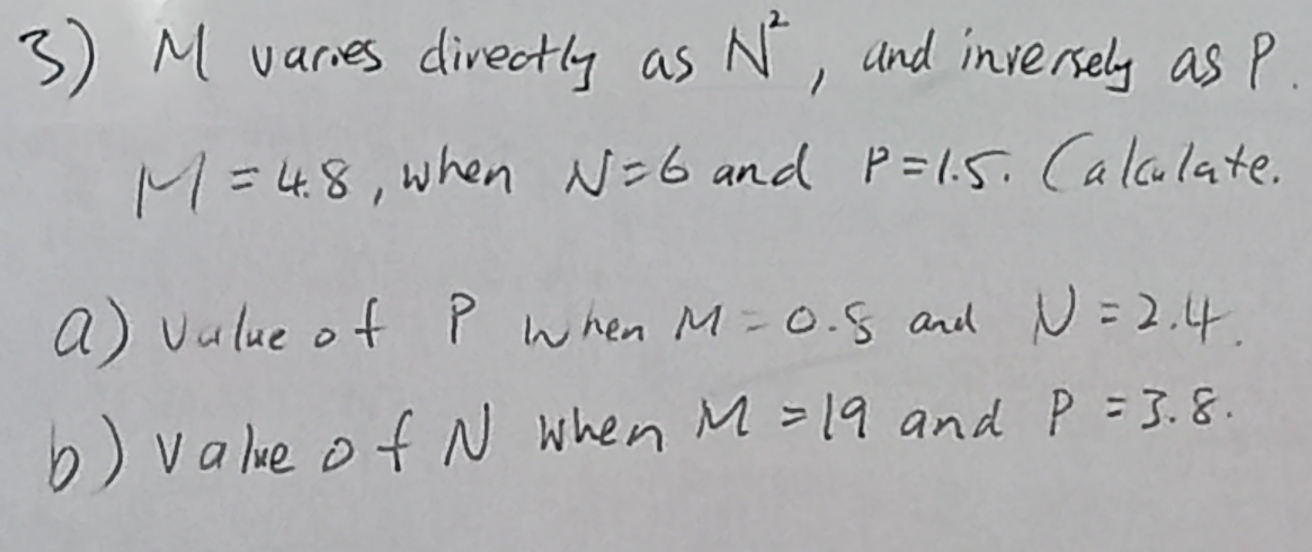 3) M varies directly as N², and inversely as P.
M = 4.8, when N=6 and P=1.5. Calculate.
a) Value of P when M = 0.8 and N = 2.4.
b) Value of N when M = 19 and P = 3.8.